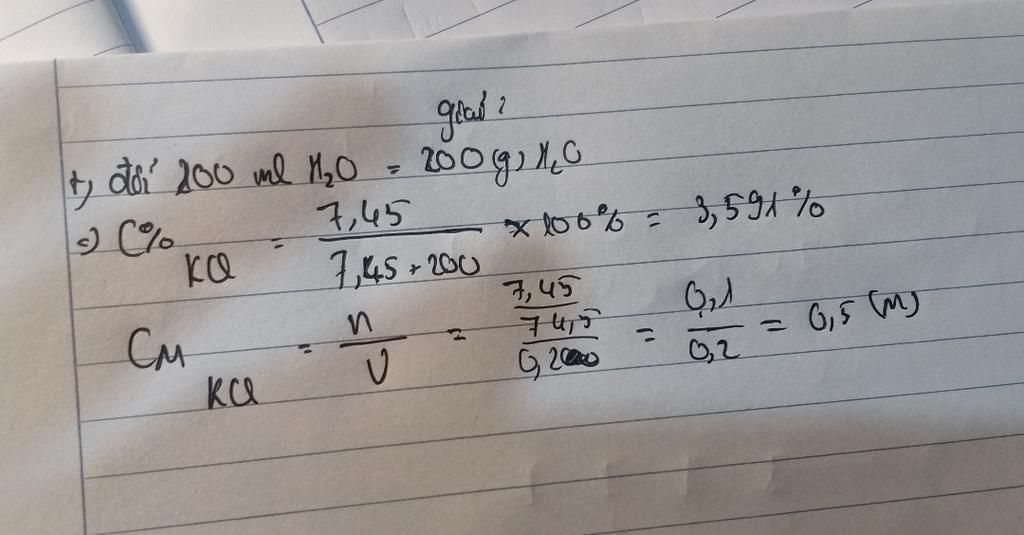 giải:
+) đổi 200 ml H₂O = 200 (g) H₂O
=) C% KCl = 7,45 / (7,45 + 200) × 100% = 3,591%
CM KCl = n / V = (7,45 / 74,5) / 0,2 = 0,1 / 0,2 = 0,5 (M)